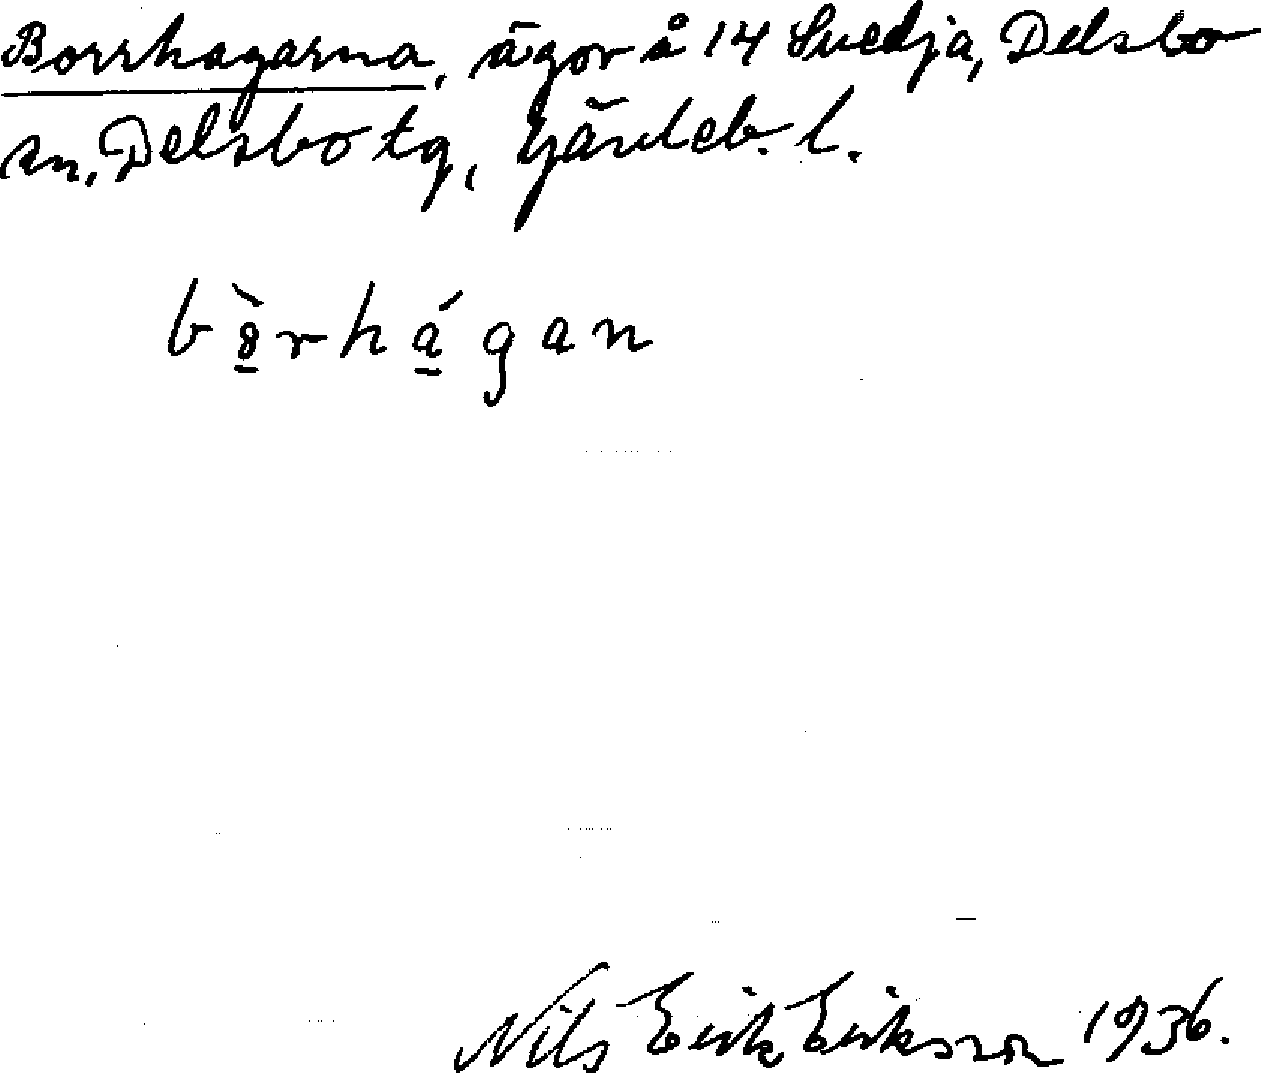 Borrhagarna, ägor å 14 Svedja, Delsbo
sn, Delsbo tg, Gävleb. l.
bȣ̱̀rhá̱gan
Nils Erik Eriksson 1936.